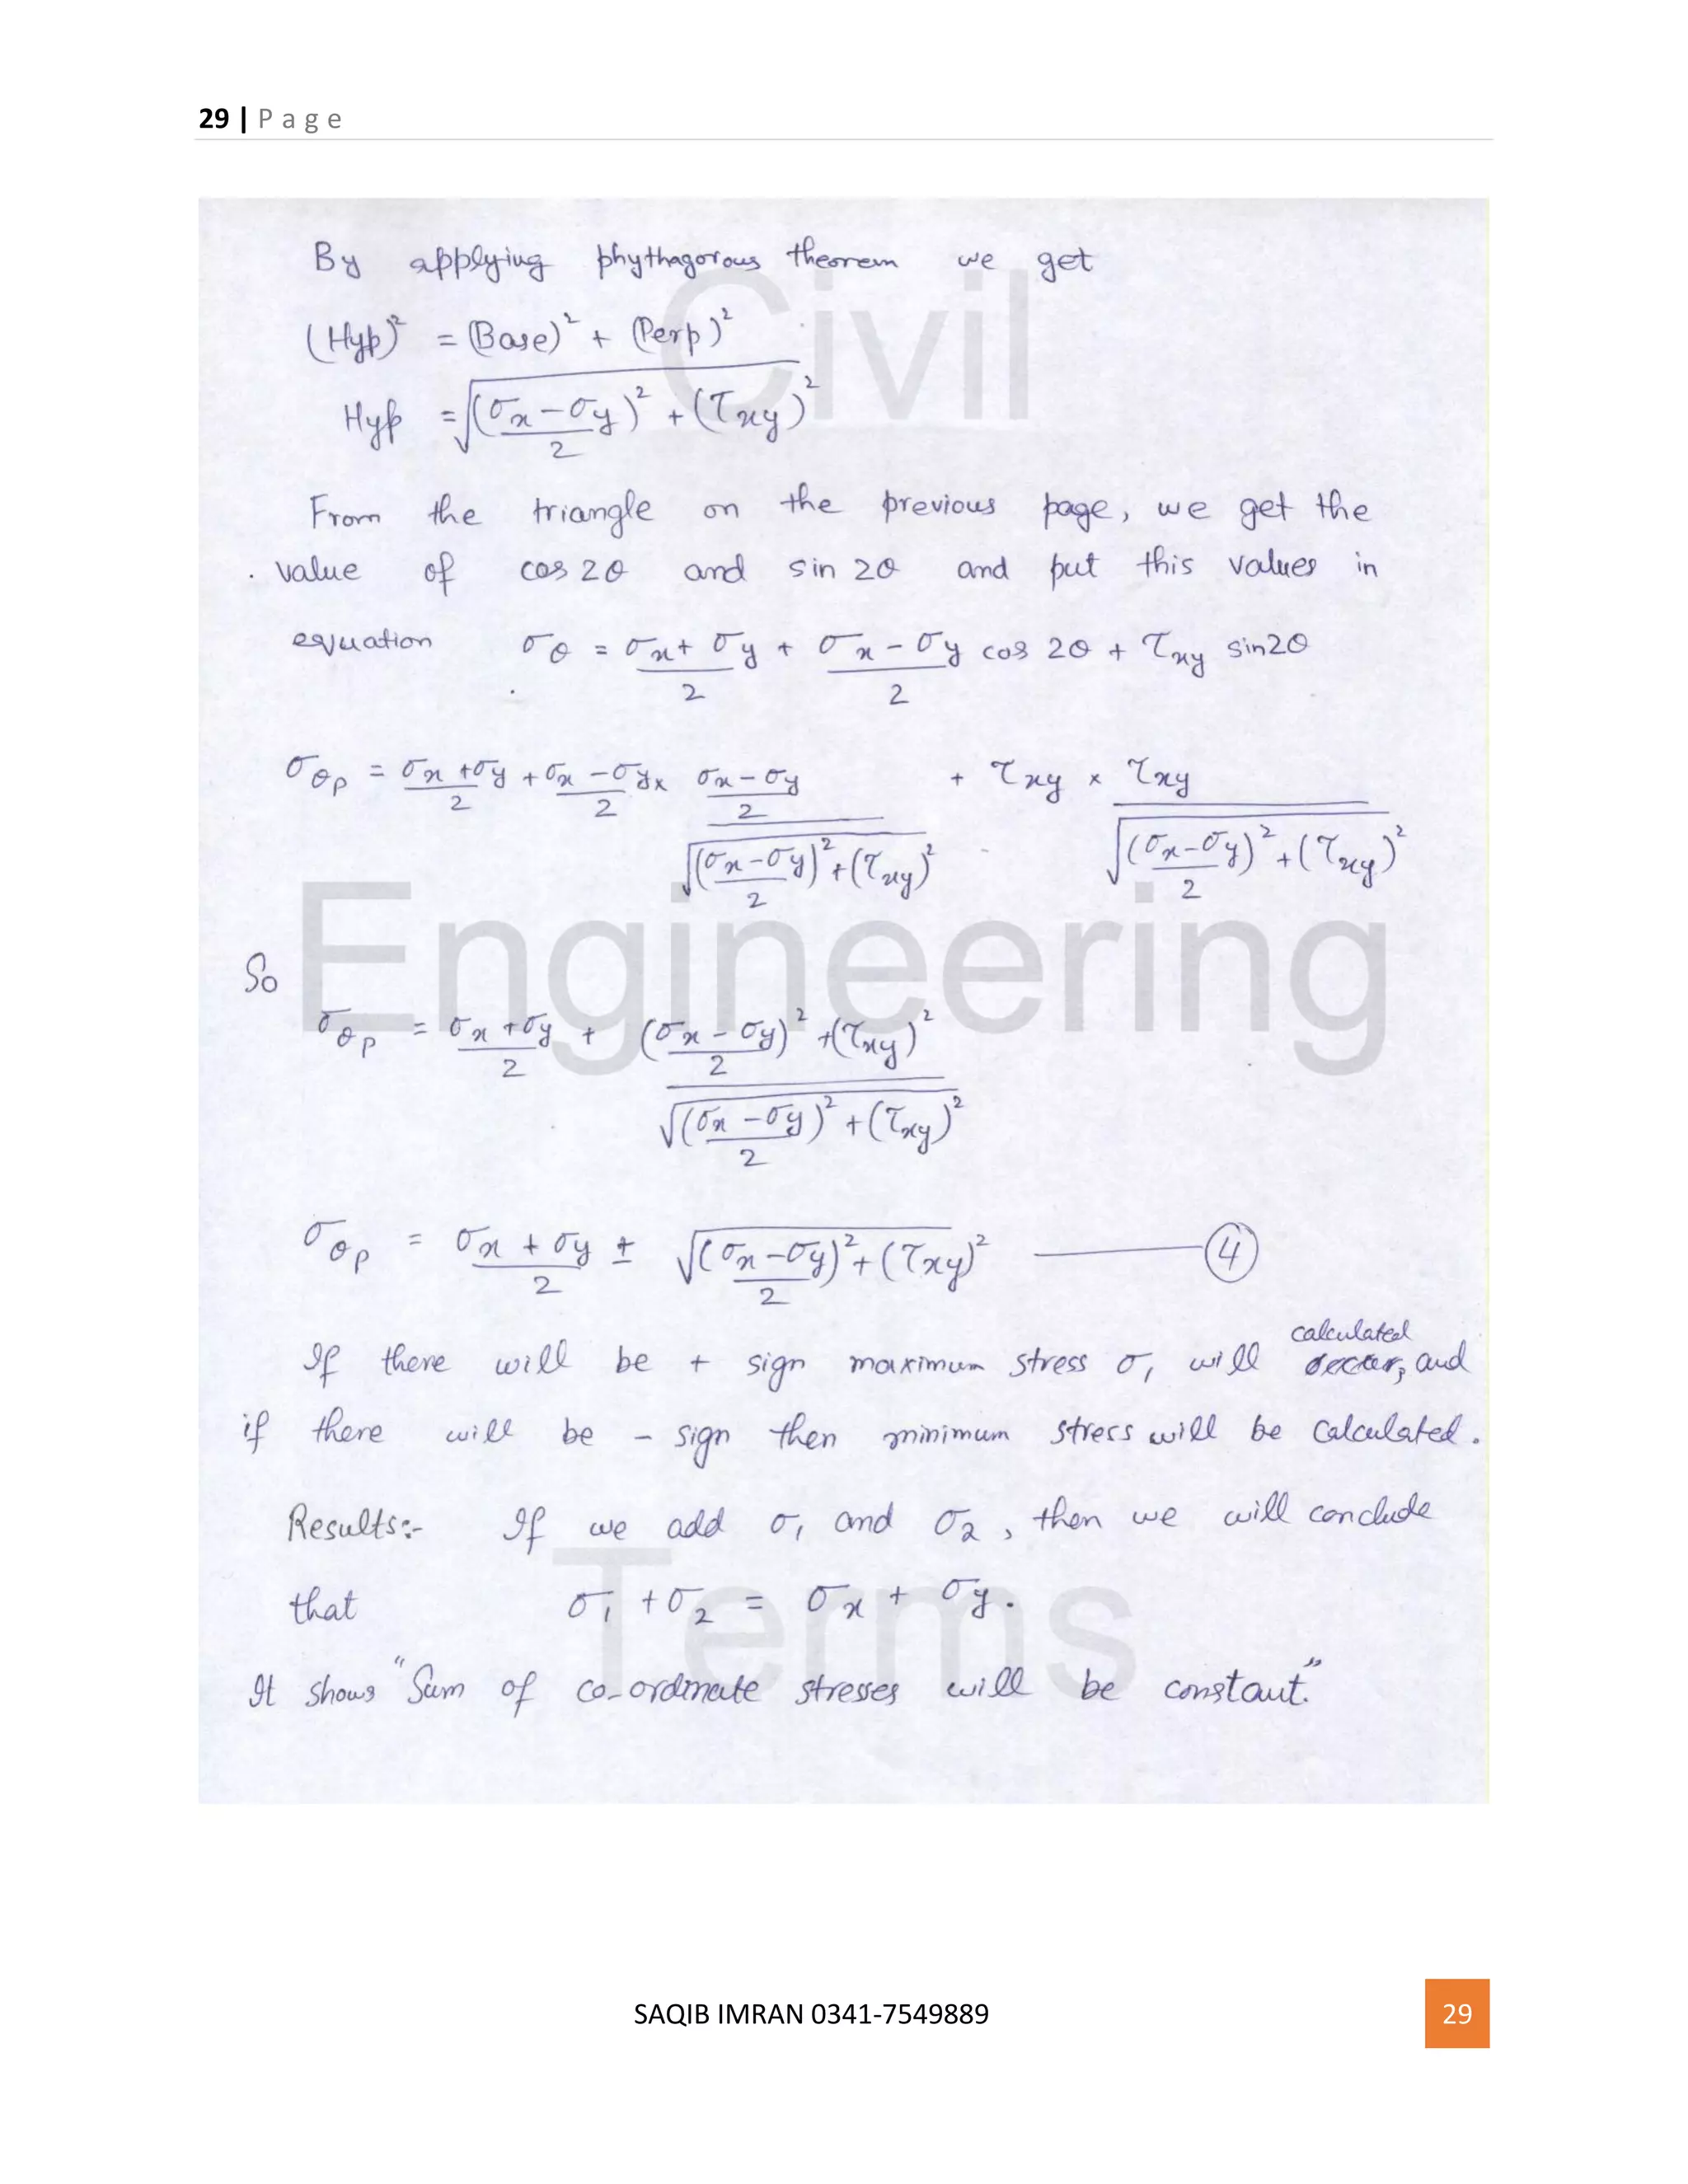 29 | P a g e
By applying phythagorous theorem we get
(Hyp)² = (Base)² + (Perp)²
Hyp = √((σx - σy)/2)² + (τxy)²
From the triangle on the previous page, we get the
value of cos 2θ and sin 2θ and put this values in
equation σθ = (σx + σy)/2 + (σx - σy)/2 cos 2θ + τxy sin2θ
σθp = (σx + σy)/2 + (σx - σy)/2 × ((σx - σy)/2)/√((σx - σy)/2)² + (τxy)² + τxy × τxy/√((σx - σy)/2)² + (τxy)²
So
σθp = (σx + σy)/2 + (((σx - σy)/2)² + (τxy)²)/√((σx - σy)/2)² + (τxy)²
σθp = (σx + σy)/2 ± √((σx - σy)/2)² + (τxy)² —— 4
If there will be + sign maximum stress σ1 will calculated, and
if there will be - sign then minimum stress will be calculated.
Results:- If we add σ1 and σ2, then we will conclude
that σ1 + σ2 = σx + σy.
It shows "Sum of co-ordinate stresses will be constant."
Civil
Engineering
Terms
SAQIB IMRAN 0341-7549889
29